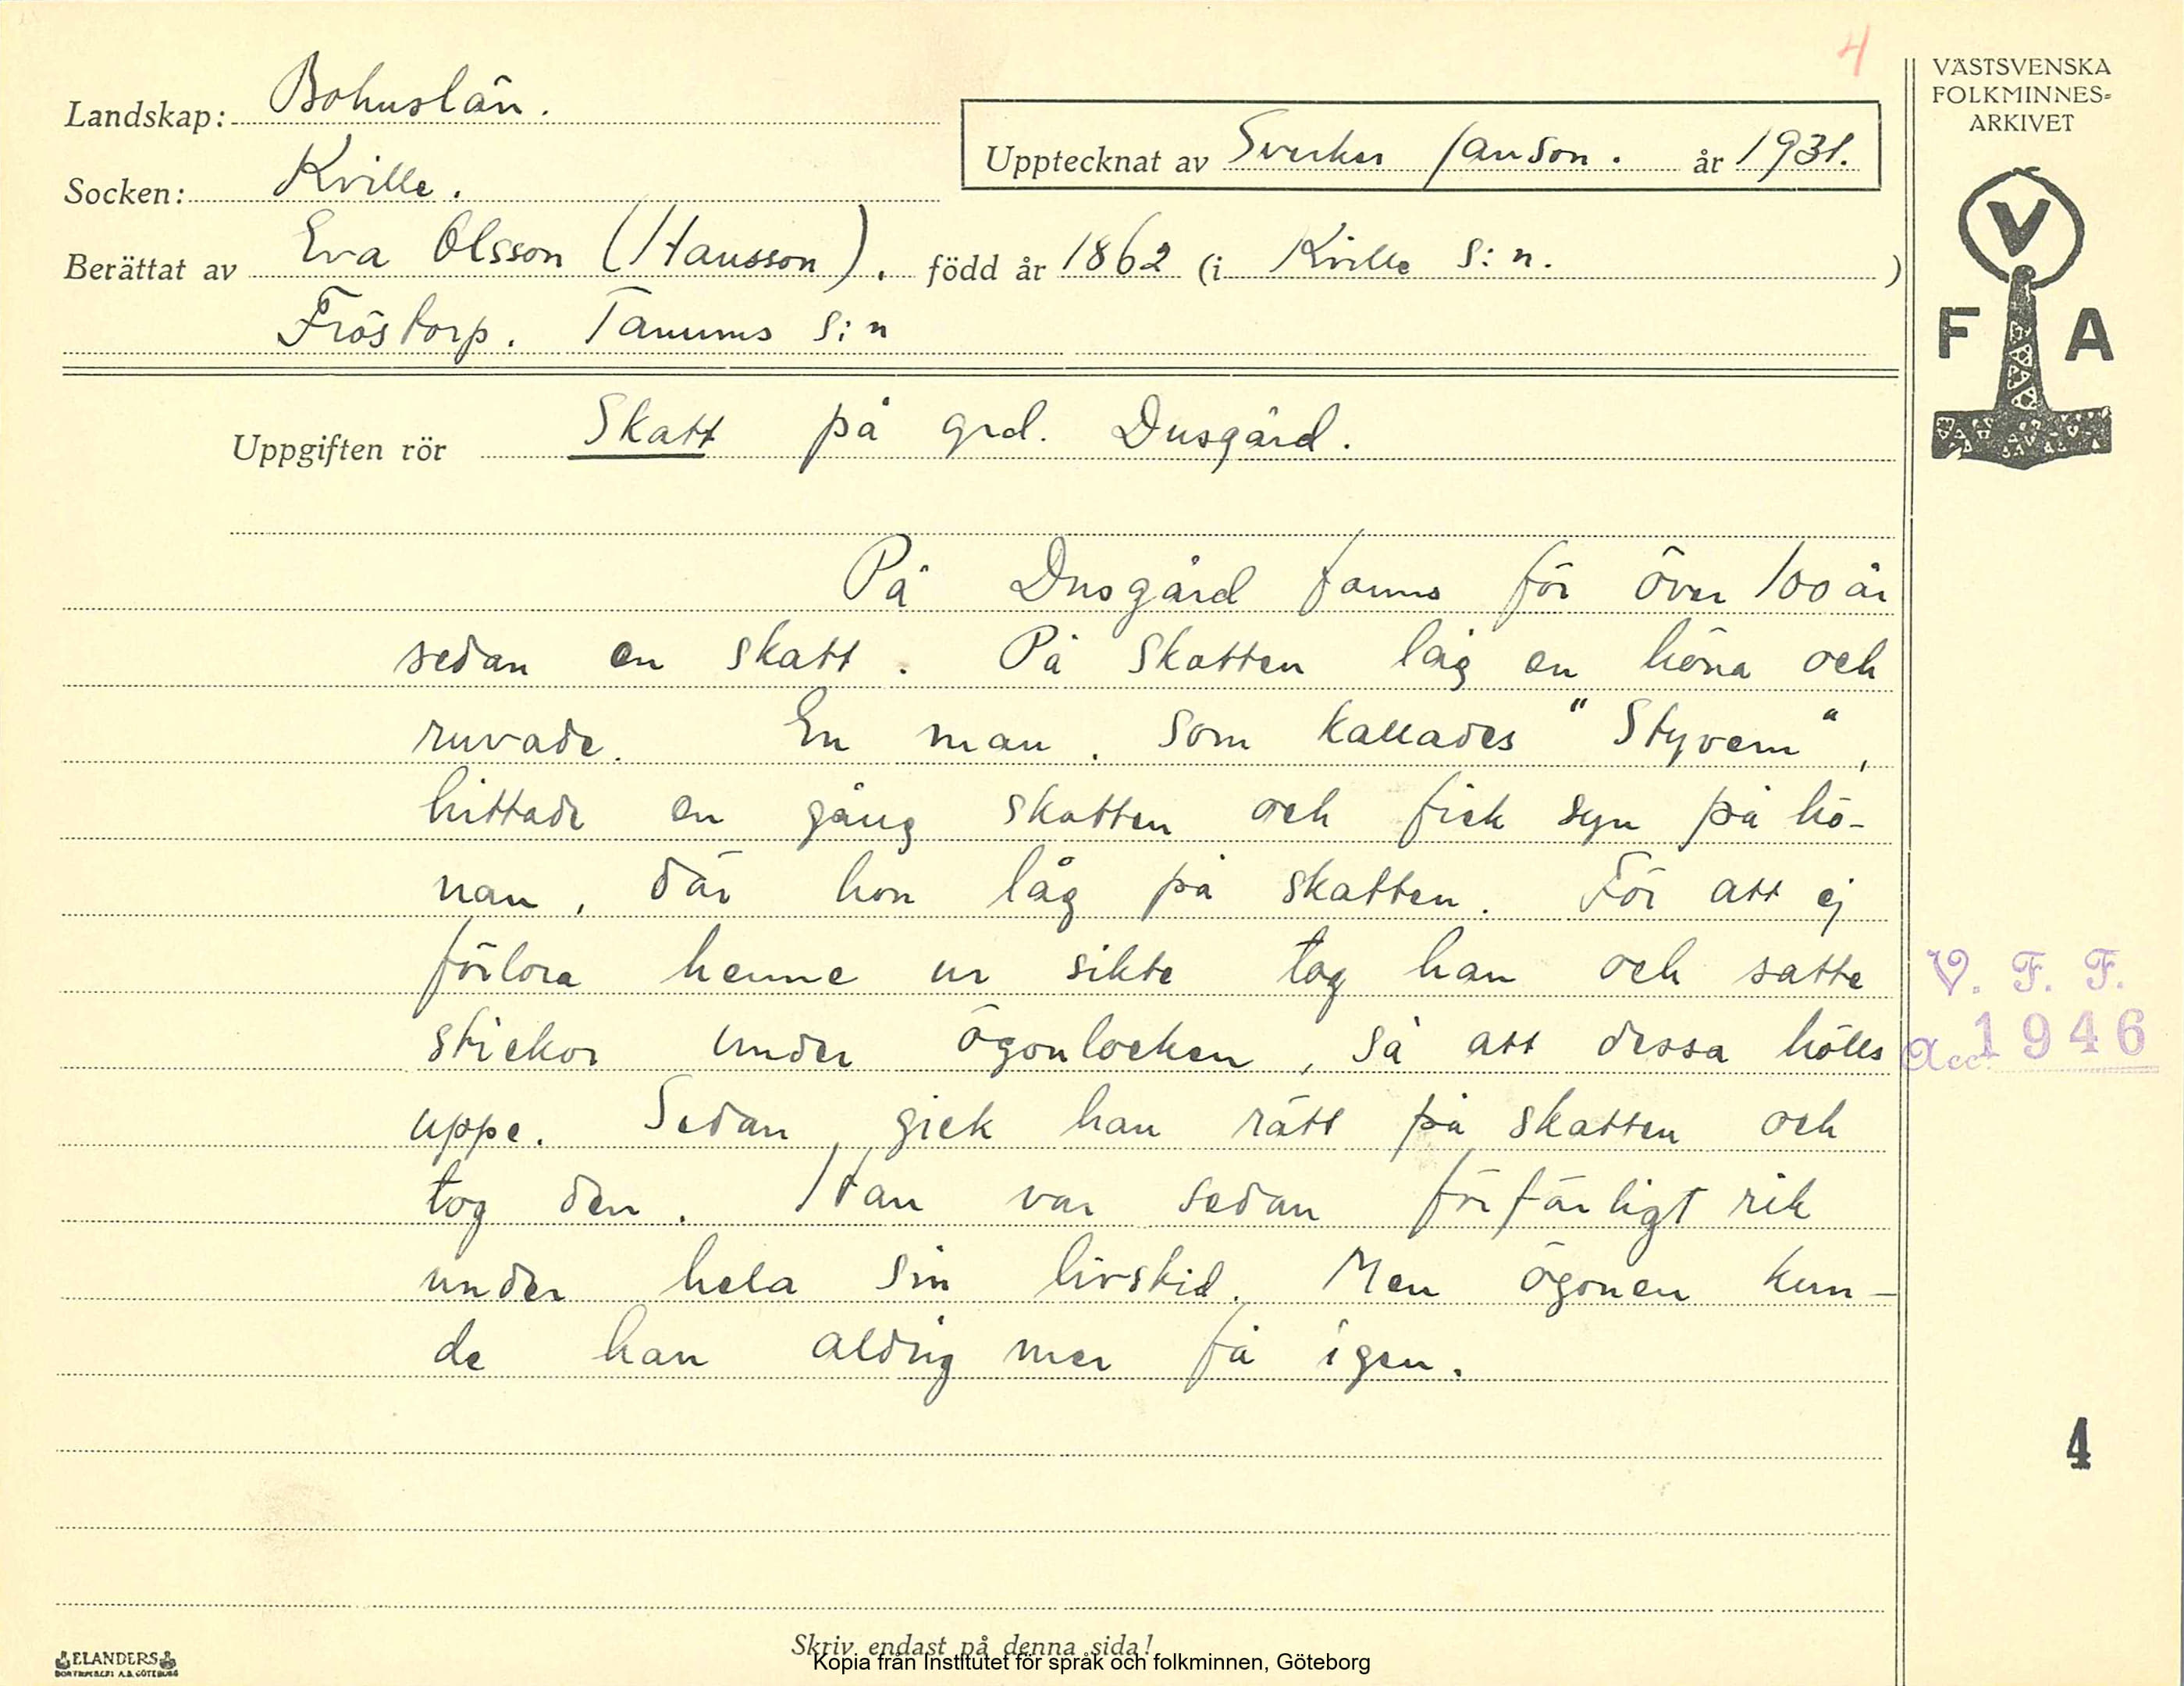 4
VÄSTSVENSKA
FOLKMINNES=
ARKIVET
Landskap: Bohuslän.
Upptecknat av Sverker Janson. år 1931.
Socken: Kville.
Berättat av Eva Olsson (Hansson). född år 1862 (i Kville s:n. )
Fröstorp. Tanums s:n
V
F A
Uppgiften rör Skatt på grd. Dusgård.
På Dusgård fanns för över 100 år
sedan en skatt. På skatten låg en höna och
ruvade. En man, som kallades "Styvern",
hittade en gång skatten och fick syn på hö-
nan, där hon låg på skatten. För att ej
förlora henne ur sikte tog han och satte
stickor under ögonlocken, så att dessa hölls
uppe. Sedan gick han rätt på skatten och
tog den. Han var sedan förfärligt rik
under hela sin livstid. Men ögonen kun-
de han aldrig mer få igen.
V. F. F.
Acc. 1946
4
Skriv endast på denna sida!
Kopia från Institutet för språk och folkminnen, Göteborg
ELANDERS